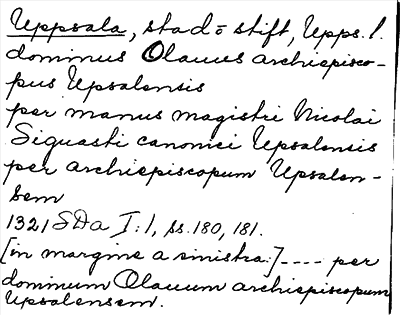 Uppsala, stad o stift, Upps. l.
dominus Olauus archiepisco-
pus Upsalensis
per manus magistri Nicolai
Siguasti canonici Upsalensis
per archiepiscopum Upsalen-
sem
1321 SDa I:1, ss. 180, 181.
[in margine a sinistra:] ---- per
dominum Olauum archiepiscopum
Upsalensem.